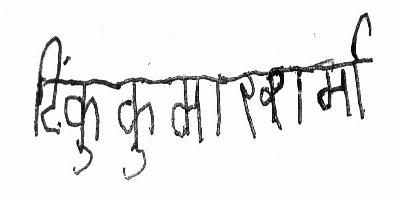 टिंकु कुमार शर्मा